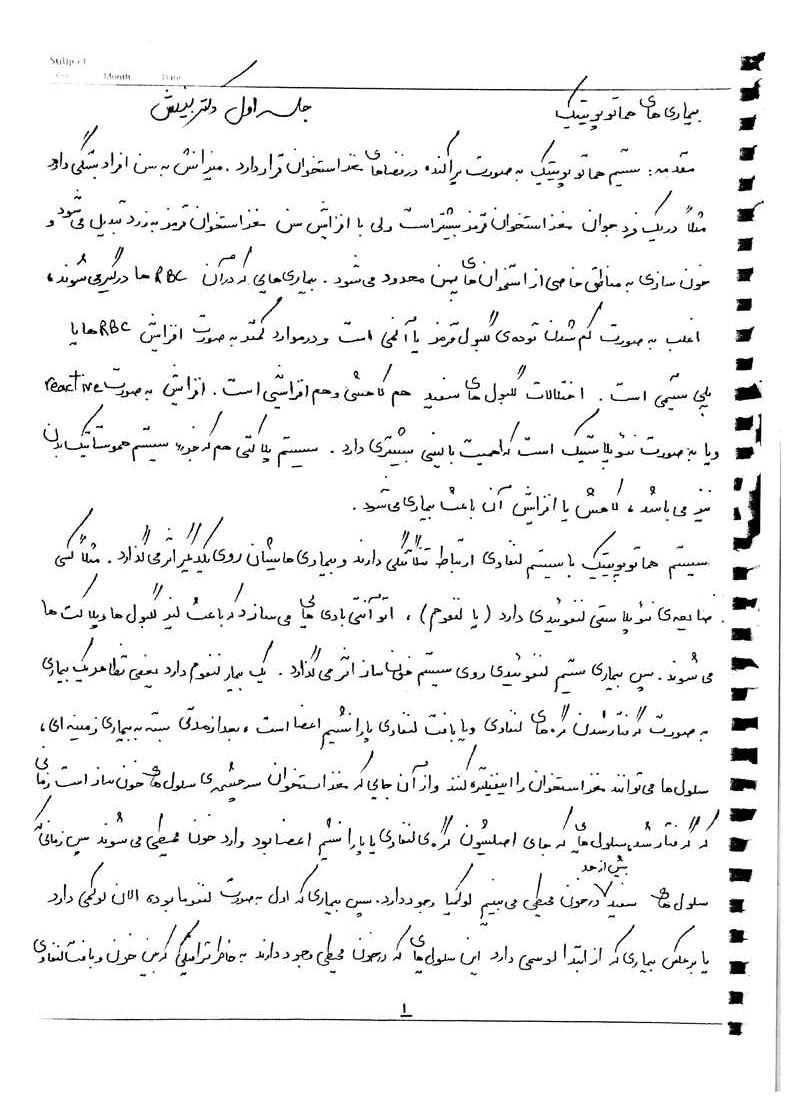 Subject
Month Date
بیماری های هماتوپویتیک جلسه اول دکتر بینش
مقدمه: سیستم هماتوپویتیک به صورت پراکنده در فضاهای مغز استخوان قرار دارد. میزانش به سن افراد بستگی دارد
مثلاً در یک فرد جوان مغز استخوان قرمز بیشتر است ولی با افزایش سن مغز استخوان قرمز به زرد تبدیل می شود و
خون سازی به مناطق خاصی از استخوان های پهن محدود می شود. بیماری هایی که در آن RBC ها درگیر می شوند،
اغلب به صورت کم شدن توده ی گلبول قرمز یا آنمی است و در موارد کمتر به صورت افزایش RBC ها یا
پلی سیتمی است. اختلالات گلبول های سفید هم کاهشی و هم افزایشی است. افزایش به صورت reactive
و یا به صورت نئوپلاستیک است که اهمیت بالینی بیشتری دارد. سیستم پلاکتی هم که جزء سیستم هموستاتیک بدن
نیز می باشد، کاهش یا افزایش آن باعث بیماری می شود.
سیستم هماتوپویتیک با سیستم لنفاوی ارتباط تنگاتنگی دارند و بیماری هایشان روی یکدیگر اثر می گذارد. مثلاً کسی
ضایعه ی نئوپلاستی لنفوئیدی دارد (یا لنفوم)، اتوآنتی بادی هایی می سازد که باعث لیز گلبول ها و پلاکت ها
می شوند. پس بیماری سیستم لنفوئیدی روی سیستم خون ساز اثر می گذارد. یک بیمار لنفوم دارد یعنی تظاهر یک بیماری
به صورت گرفتار شدن گره های لنفاوی و یا بافت لنفاوی پارانشیم اعضا است، بعد از مدتی بسته به بیماری زمینه ای،
سلول ها می توانند مغز استخوان را اینفیلتره کنند و از آن جایی که مغز استخوان سرچشمه ی سلول های خون ساز است زمانی
که گرفتار شد، سلول هایی که جای اصلیشون گره ی لنفاوی یا پارانشیم اعضا بود وارد خون محیطی می شوند پس زمانی که
سلول های سفید بیش از حد در خون محیطی می بینیم لوکمیا وجود دارد. پس بیماری که اول به صورت لنفوما بوده الان لوکمی دارد
یا برعکس بیماری که از ابتدا لوسمی دارد این سلول هایی که در خون محیطی وجود دارند به خاطر ترافیکی که بین خون و بافت لنفاوی
۱